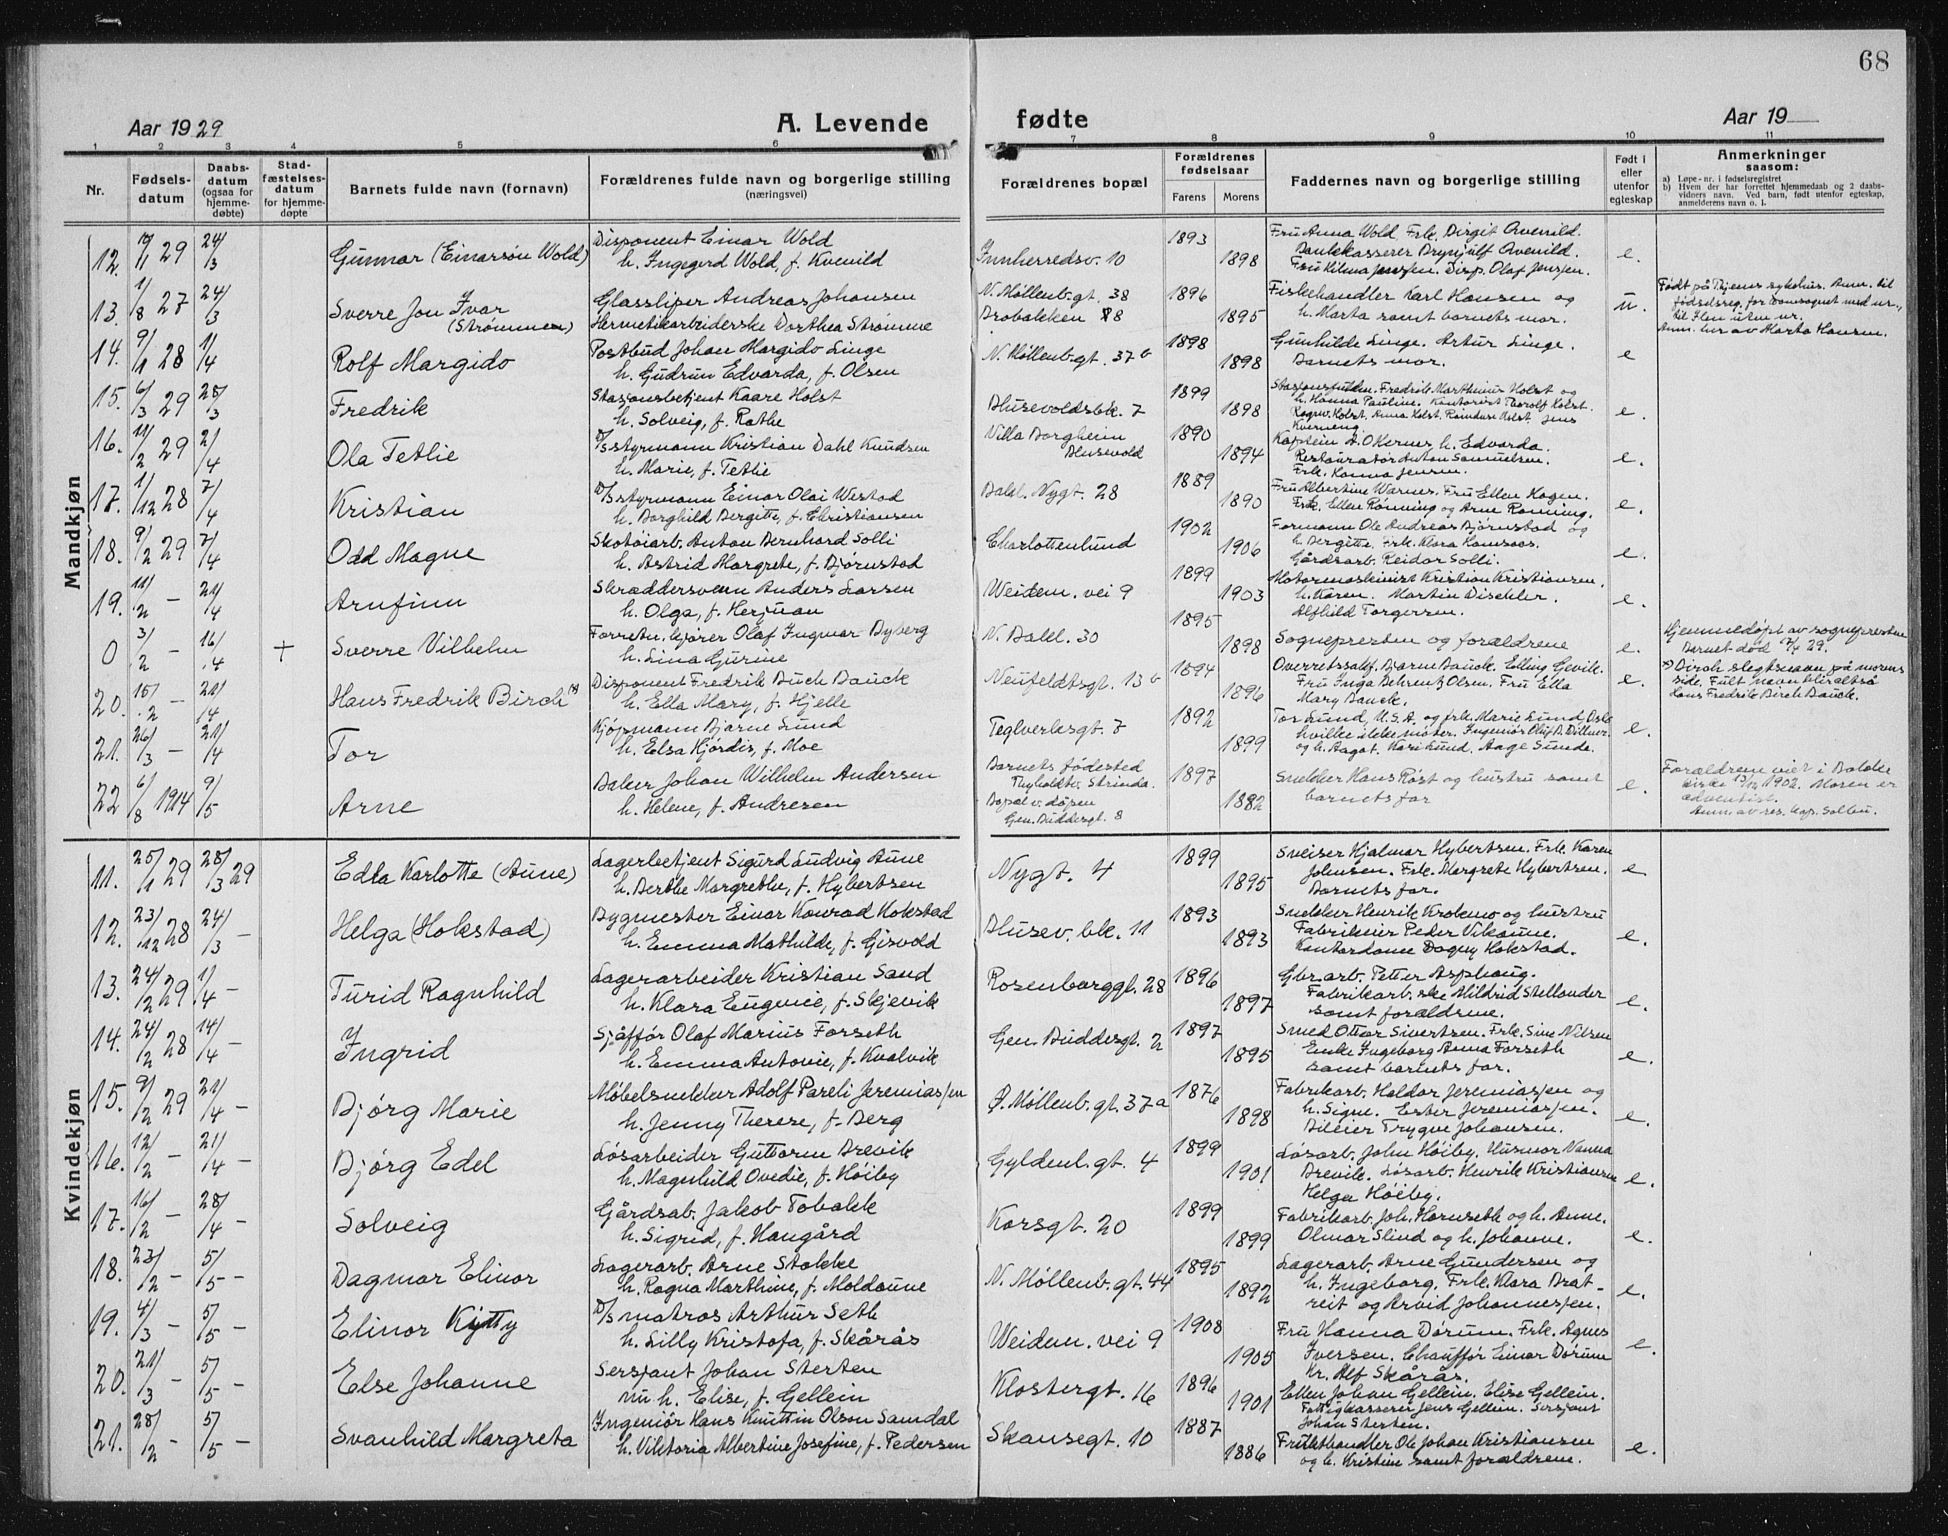 68
Aar 1929
A. Levende
fødte
Aar 19
1 2 3 4 5 6 7 8 9 10 11
Nr.
Fødsels-
datum
Daabs-
datum
(ogsaa for
hjemme-
døbte)
Stad-
fæstelses-
datum
for hjemme-
døpte
Barnets fulde navn (fornavn)
Forældrenes fulde navn og borgerlige stilling
(næringsvei)
Forældrenes bopæl
Forældrenes
fødselsaar
Farens Morens
Faddernes navn og borgerlige stilling
Født i
eller
utenfor
egteskap
Anmerkninger
saasom:
a) Løpe-nr. i fødselsregistret
b) Hvem der har forrettet hjemmedaab og 2 daabs-
vidners navn. Ved barn, født utenfor egteskap,
anmelderens navn o. l.
Mandkjøn
12. 19/1 29 24/3 Gunnar (Einarsøn Wold)
Disponent Einar Wold
h. Ingegerd Wold, f. Kvenild
Innherredsv. 10 1893 1898
Fru Anna Wold. Frk. Birgit Qvenild.
Bankkasserer Brynjulf Qvenild.
Fru Hilma Jenssen. Disp. Olaf Jenssen.
e.
13. 1/8 27 24/3 Sverre Jon Ivar
(Strømmen)
Glassliper Andreas Johansen
Hermetikarbeiderske Dorthea Strømme
N. Møllenb.gt. 38
Brobakken 8 1896 1895
Fiskehandler Karl Hansen og
h. Marta samt barnets mor.
u.
Født på Thjems sykehus. Anm. til
fødselsreg. for domsognet med nr.,
til Ilen uten nr.
Anm. her av Marta Hansen.
14. 9/1 28 1/4 Rolf Margido
Postbud Johan Margido Singe
h. Gudrun Edvarda, f. Olsen
N. Møllenb.gt. 37 b 1898 1898
Gunhilde Singe. Artur Singe.
Barnets mor.
e
15. 6/3 29 28/3 Fredrik
Stasjonsbetjent Kaare Holst
h. Solveig, f. Rathe
Bhusevoldsbk. 7 1899 1898
Stasjonsfuldm. Fredrik Marthinus Holst og
h. Hanna Pauline. Kontorist Thorolf Holst.
Ragnv. Holst. Anna Holst. Randure Holst. Jens
Kverneng.
e.
16. 11/2 29 2/4 Ola Tetlie
D/S styrmann Kristian Dahl Knudsen
h. Marie, f. Tetlie
Villa Borgheim
Bhusevold 1890 1894
Kaptein A. O Kerner h. Edvarda.
Restauratør Anton Samuelsen.
Frk. Hanna Jensen.
e.
17. 1/12 28 7/4 Kristian
D/S styrmann Einar Olai Westad
h. Borghild Bergitte, f. Christiansen
Bakl. Nygt. 28 1889 1890
Fru Albertine Warner. Fru Ellen Hagen.
Frk. Ellen Rønning og Arne Rønning.
e.
18. 9/2 29 7/4 Odd Magne
Skotøiarb. Anton Bernhard Solli
h. Astrid Margrete, f. Bjørnstad
Charlottenlund 1902 1906
Formann Ole Andreas Bjørnstad og
h. Bergitte. Frk. Klara Hansaas.
Gårdsarb. Reidar Solli.
e.
19. 11/2 - 21/4 Arnfinn
Skræddersvenn Anders Larsen
h. Olga, f. Herjuan
Weidem. vei 9 1899 1903
Motormaskinist Kristian Kristiansen.
h. Karen. Martin Dischler.
Alfhild Torgersen.
e.
0 3/2 - 16/4 + Sverre Vilhelm
Forretn. kjører Olaf Ingmar Dyberg
h. Lina Gurine
N. Bakl. 30 1895 1898
Sognepresten og forældrene
e.
Hjemmedøpt av sognepresten
Barnet død 7/4 29.
20. 15/2 - 21/4 Hans Fredrik Birch *)
Disponent Fredrik Buch Bauck
h. Ella Mary, f. Hjelle
Neufeldtsgt. 13 b 1894 1896
Overretssakf. Bjarne Bauck. Elling Gevik.
Fru Inga Behrentz Olsen. Fru Ella
Mary Bauck.
e.
*) Birch slegtsnavn på morens
side. Fult navn blir altså
Hans Fredrik Birch Bauck.
21. 26/3 - 21/4 Tor
Kjøpmann Bjarne Lund
h. Elsa Hjørdis, f. Moe
Teglverksgt. 7 1892 1899
Tor Lund, U.S.A. og frk. Marie Lund, Oslo
hvilke ikke møter. Ingeniør Oluf A. Dillner
og h. Aagot. Kari Lund. Aage Sunde.
e.
22 6/8 1914 9/5 Arne
Baker Johan Wilhelm Andersen
h. Helene, f. Andresen
Barnets fødested
Thyholdter, Strinda.
Bopæl v. døpen
Gen. Buddesgt. 8 1897 1882
Snekker Hans Røst og hustru samt
barnets far
e.
Forældrene viet i Bakke
kirke 13/12 1902. Moren er
adventist.
Anm. av res. kap. Solbu.
Kvindekjøn
11. 25/1 29 28/3 29 Edla Karlotte (Aune)
Lagerbetjent Sigurd Ludvig Aune
h. Berthe Margrethe, f. Hybertsen
Nygt. 4 1899 1895
Sveiser Hjalmar Hybertsen. Frk. Karen
Johnsen. Frk. Margrete Hybertsen.
Barnets far.
e
12. 23/12 28 24/3 - Helga (Hokstad)
Bygmester Einar Konrad Hokstad
h. Emma Mathilde, f. Gisvold
Bhusev. bk. 11 1893 1893
Snekker Henrik Krokmo og hustru
Fabrikeier Peder Vikaune.
Kontordame Dagny Hokstad.
e.
13. 24/2 29 1/4 - Turid Ragnhild
Lagerarbeider Kristian Sand
h. Klara Eugenie, f. Skjevik
Rosenborggt. 28 1896 1897
Gbr.arb. Petter Asphaug.
Fabrikarb.ske Mildrid Stellander
samt forældrene.
e.
14. 24/2 28 14/4 - Ingrid
Sjåffør Olaf Marius Forseth
h. Emma Antonie, f. Kvalvik
Gen. Buddesgt. 2 1897 1895
Smed Ottar Sivertsen. Frk. Sine Nilsen
Enke Ingeborg Anna Forseth
samt barnets far.
e.
15. 9/2 29 21/4 - Bjørg Marie
Møbelsnekker Adolf Pareli Jeremiassen
h. Jenny Therese, f. Berg
Ø. Møllenb.gt. 37a 1876 1898
Fabrikarb. Haldor Jeremiassen og
h. Signe. Ester Jeremiassen.
Bileier Trygve Johansen.
e.
16. 12/2 - 21/4 - Bjørg Edel
Løsarbeider Guttorm Brevik
h. Magnhild Ovedie, f. Høiby
Gyldenl. gt. 4 1899 1901
Løsarb. John Høiby. Husmor Nanna
Brevik. Løsarb. Henrik Kristiansen
Helga Høiby.
e.
17. 16/2 - 28/4 - Solveig
Gårdsab. Jakob Tobakk
h. Sigrid, f. Haugård
Korsgt. 20 1899 1899
Fabrikarb. Joh. Harnseth og h. Anne.
Olmar Slind og h. Johanne.
e.
18. 23/2 - 5/5 - Dagmar Elinor
Lagerarb. Arne Stokke
h. Ragna Marthine, f. Moldaune
N. Møllenb.gt. 44 1895 1892
Lagerarb. Arne Gundersen og
h. Ingeborg. Frk. Klara Brat-
reit og Arvid Johannessen.
e.
19. 4/3 - 5/5 - Elinor Kytty
D/s matros Arthur Seth
h. Lilly Kristofa, f. Skårås
Weidem. vei 9 1908 1905
Fru Hanna Dørum. Frk. Agnes
Iversen. Chauffør Einar Dørum
Kr. Alf Skårås.
e.
20. 21/3 - 5/5 - Else Johanne
Sersjant Johan Sterten
h. Elise, f. Gellein
Klostergt. 16 1896 1901
Ellen Johan Gellein. Elise Gellein.
Fattigkasserer Jens Gellein. Sersjant
Johan Sterten.
21. 28/2 - 5/5 - Svanhild Margreta
Ingeniør Hans Knuttin Olson Samdal
h. Viktoria Albertine Josefine, f. Pedersen
Skansegt. 10 1887 1886
Frukthandler Ole Johan Kristiansen
og h. Kristine samt forældrene.
e.